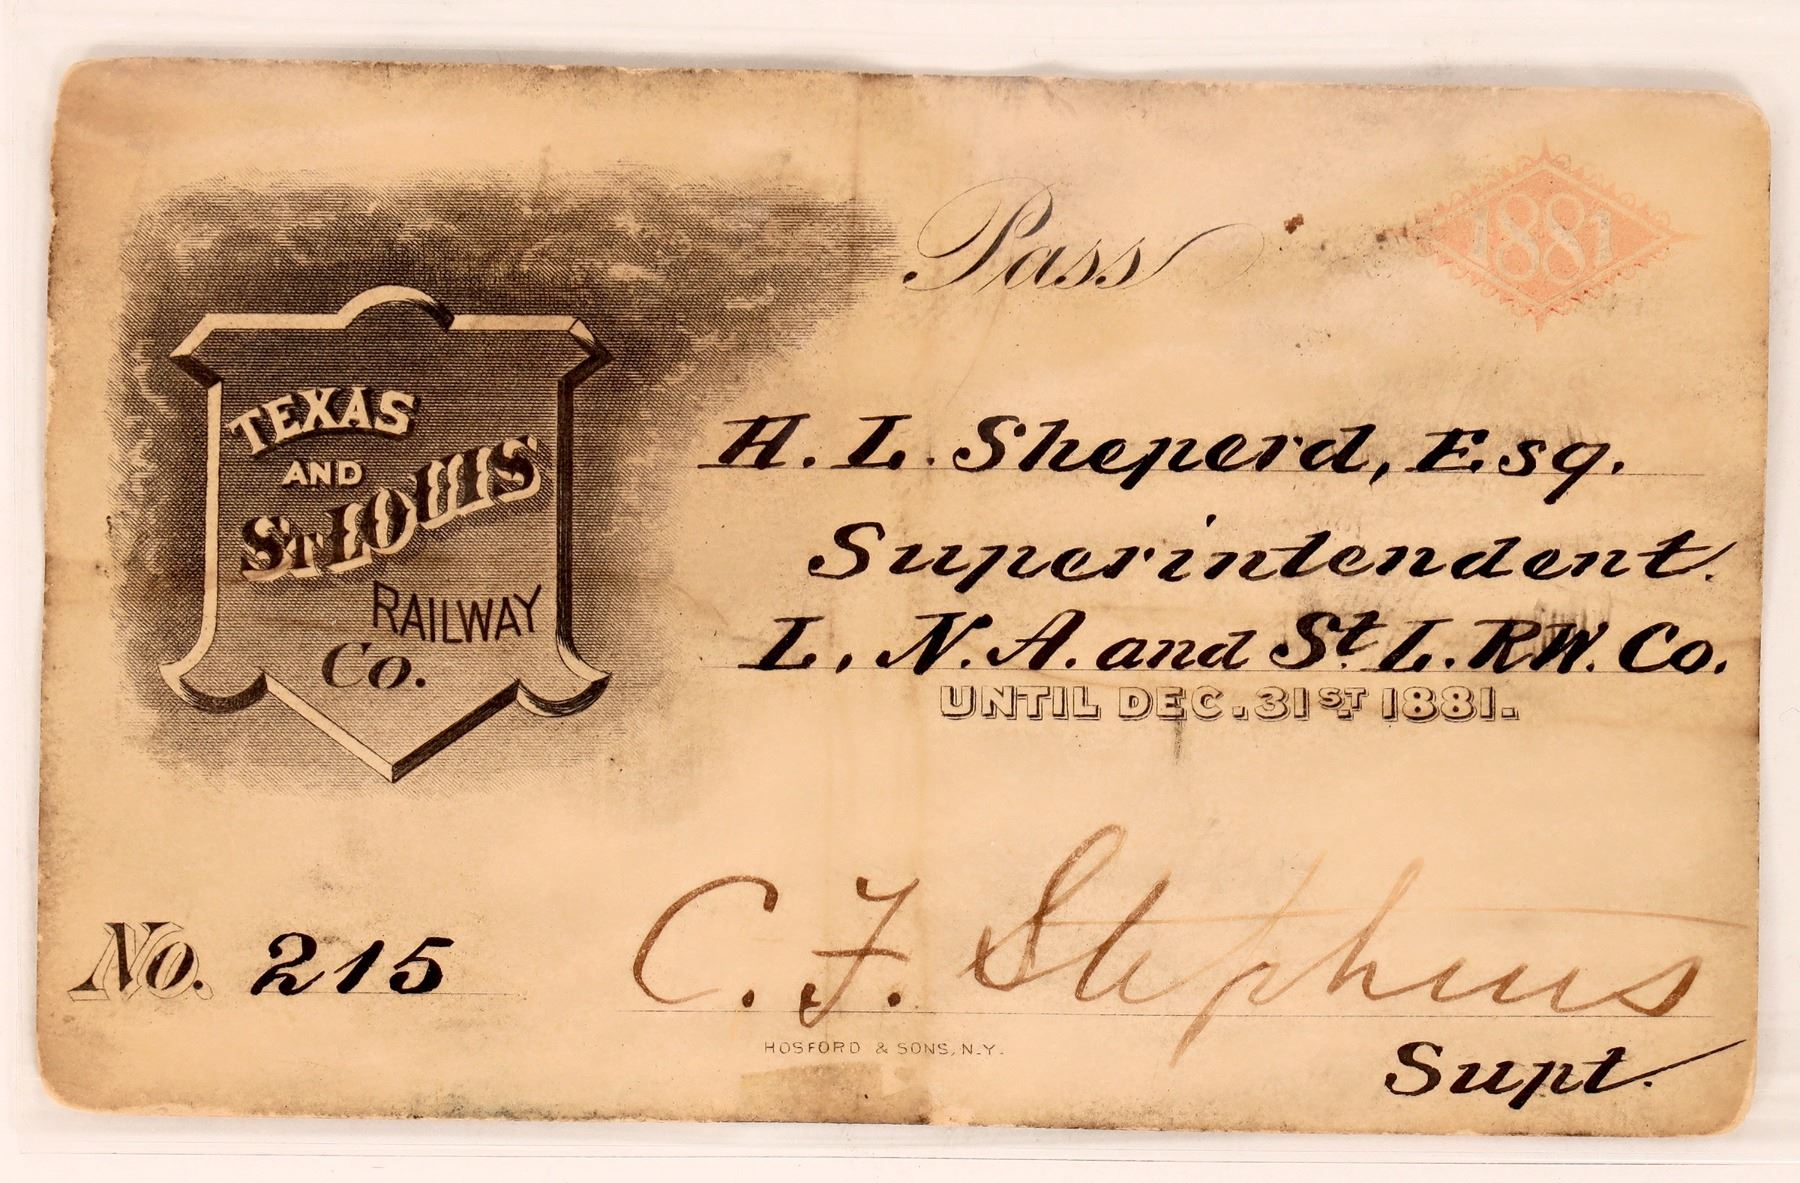 Pass
1881
TEXAS
AND
ST. LOUIS
RAILWAY
Co.
H. L. Sheperd, Esq.
Superintendent.
L. N. A. and St. L. RW. Co.
UNTIL DEC. 31ST. 1881.
No. 215
C. F. Stephens
HOSFORD & SONS, N.Y.
Supt.